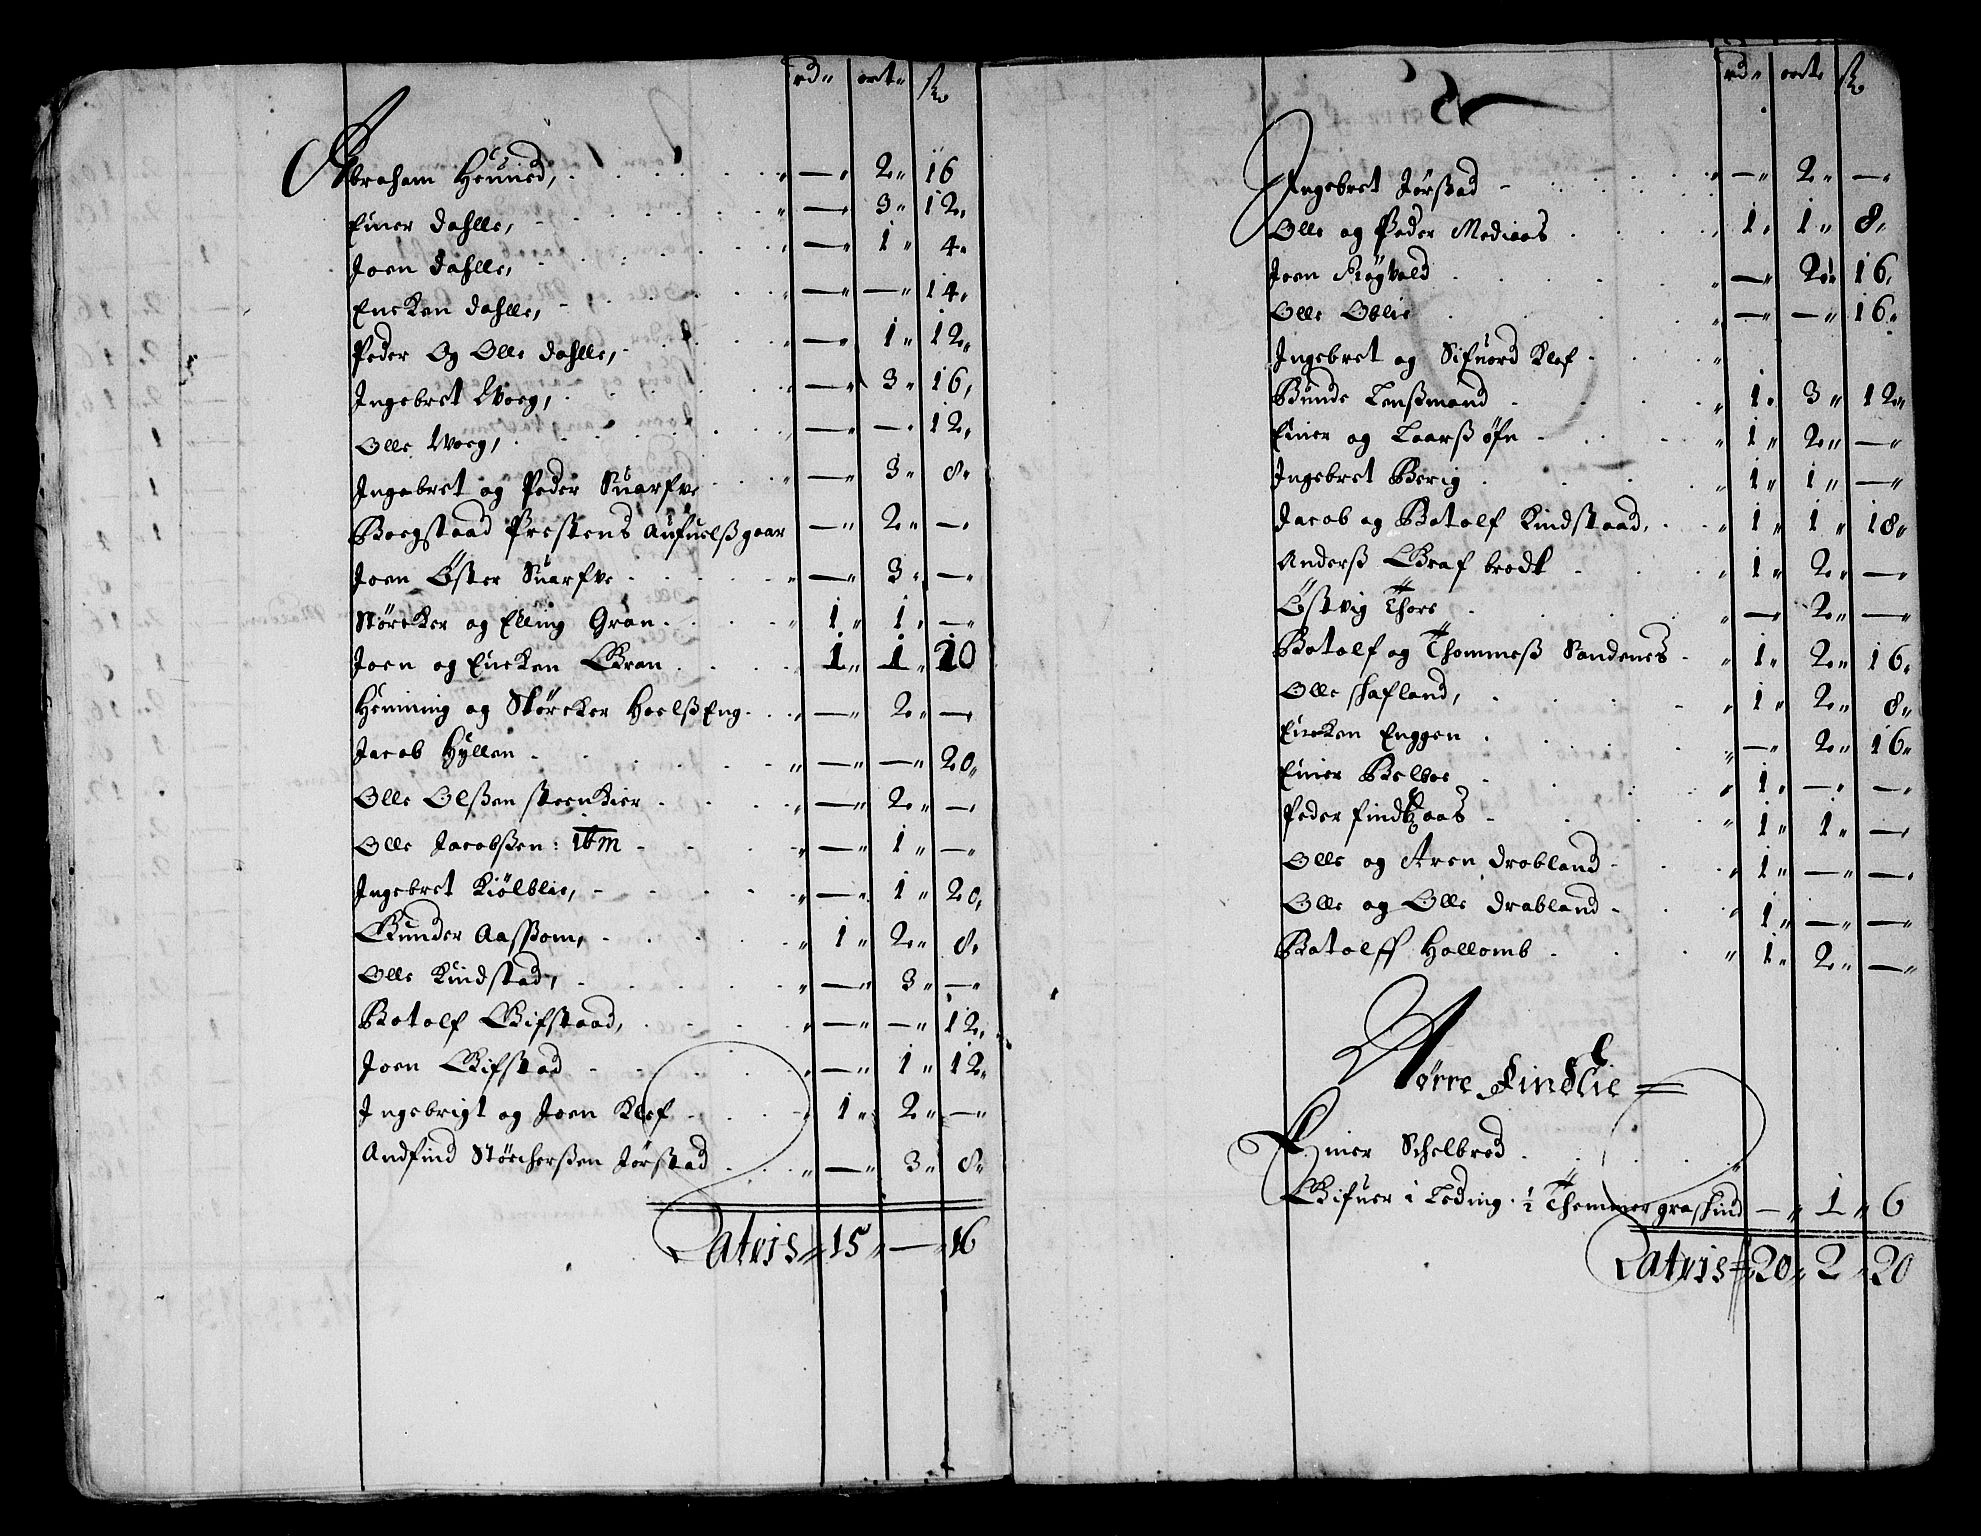 rd" ort" sk
Abraham Heunied, — " 2 " 16
Einer dahlle, — " 3 " 12
Joen dahlle, — " 1 " 4
Encken dahlle, — " — " 14
Peder Og Olle dahlle, — " 1 " 12
Ingebret Woeg, — " 3 " 16
Olle Woeg, — " — " 12
Ingebret og Peder Suarfve — " 3 " 8
Boegstaad Prestens Aufuelsgaar — " 2 " —
Joen Öster Suarfve — " 3 " —
Störcker og Elling Gran 1 " 1 " —
Joen og Encken Gran 1 " 1 " 10
Henning og Störcker HoelsEng — " 2 " —
Jacob Hyllen — " — " 20
Olle Olssen steenkier — " 2 " —
Olle Jacobssen: itm — " 1 " —
Ingebret Kiölblie, — " 1 " 20
Gunder Aassom, 1 " 2 " 8
Olle Kindstad, — " 3 " —
Botolf Gifstaad, — " — " 12
Joen Gifstad — " 1 " 12
Ingebrigt og Joen Klef 1 " 2 " —
Andfind Störcherssen Jörstad — " 3 " 8
Latris 15 " — " 16
rd" ort" sk
Ingebret Jörstad — " 2 " —
Olle og Peder Medieaas 1 " 1 " 8
Joen Röyvold — " 2 " 16
Olle Oblie — " — " 16
Ingebret og Sifuord Klef
Bunde Lensmand 1 " 3 " 12
Einer og Laarss öfn 1 " 2 " —
Ingebret Berig 1 " 1 " —
Jacob og Botolf Kindstaad, 1 " 1 " 18
Anderss Grafbrodt 1 " 2 " —
Östvig Thore — " 2 " —
Botolf og Thommess Sandenes 1 " 2 " 16
Olle skafland, 1 " 2 " 8
Encken Enggen — " 2 " 16
Einer Belboe 1 " — " —
Peder findtzaas 1 " 1 " —
Olle og Aren drabland 1 " — " —
Olle og Olle drabland 1 " — " —
Botolff Hallomb 1 " 2 " —
Nörre Findlie
Einer Schelbred
Gifuer i Leding 1/2 Themmer graskind — " 1 " 6
Latris 20 " 2 " 20